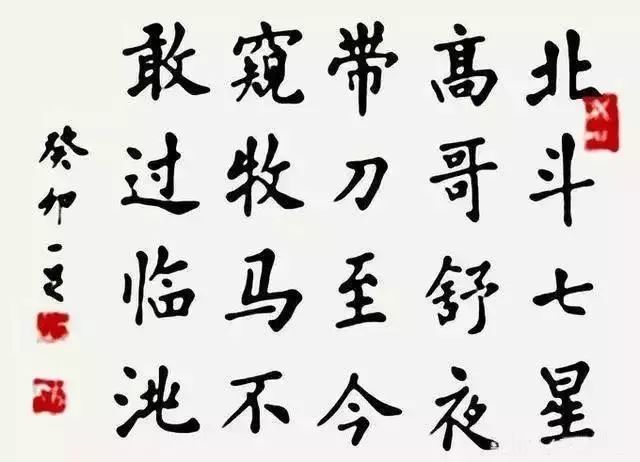 北斗七星
髙哥舒夜
带刀至今
窺牧马不
敢过临洮
癸卯一